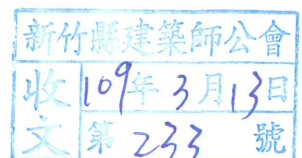 新竹縣建築師公會
收文
109年3月13日
第233號